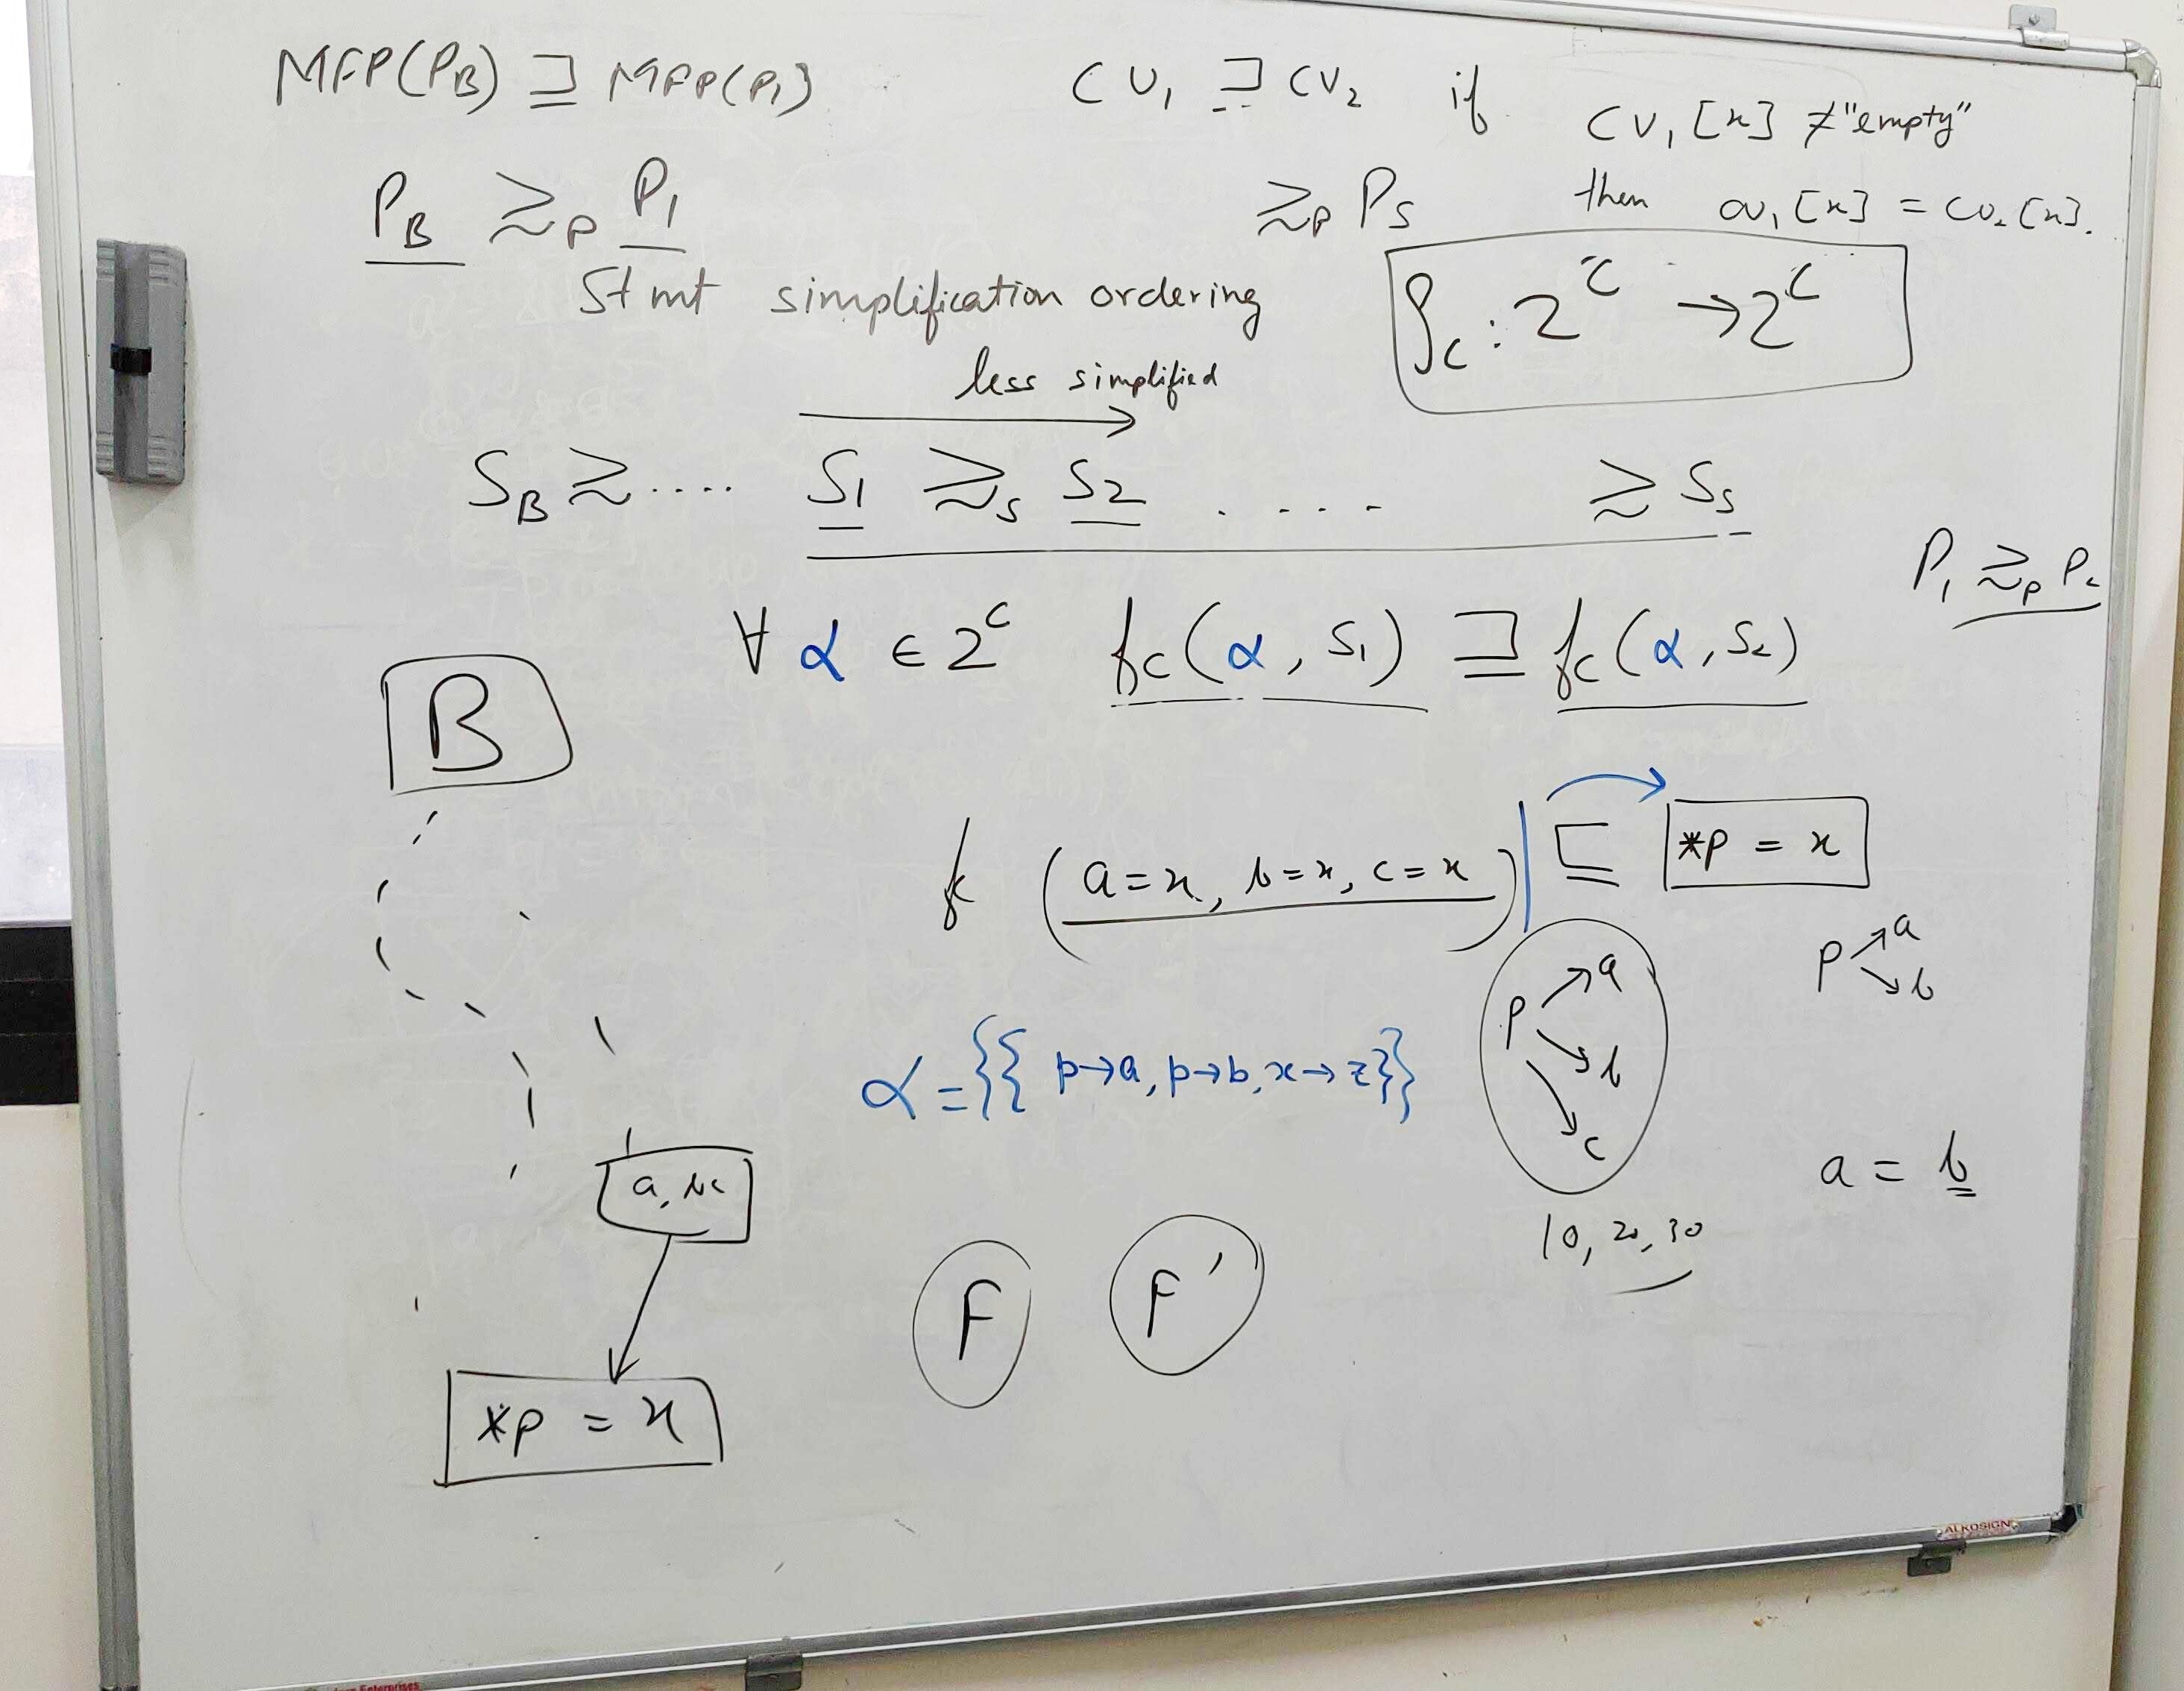 MFP(P_B) ⊒ MFP(P_1)
CV_1 ⊒ CV_2 if CV_1[x] ≠ "empty"
then CV_1[x] = CV_2[x].
P_B ≳_P P_1
≳_P P_S
Stmt simplification ordering
f_C : 2^C → 2^C
less simplified
S_B ≳ .... S1 ≳_S S2 .... ≳ S_S
P_1 ≳_P P_2
∀ α ∈ 2^C f_C(α, S_1) ⊒ f_C(α, S_2)
B
f_C (a = x, b = x, c = x) ⊑ *p = x
p → a
→ b
p → a
→ b
→ c
α = {{ p→a, p→b, x→z}}
a, b c
a = b
10, 20, 30
F F'
*p = x
ALKOSIGN
Enterprises